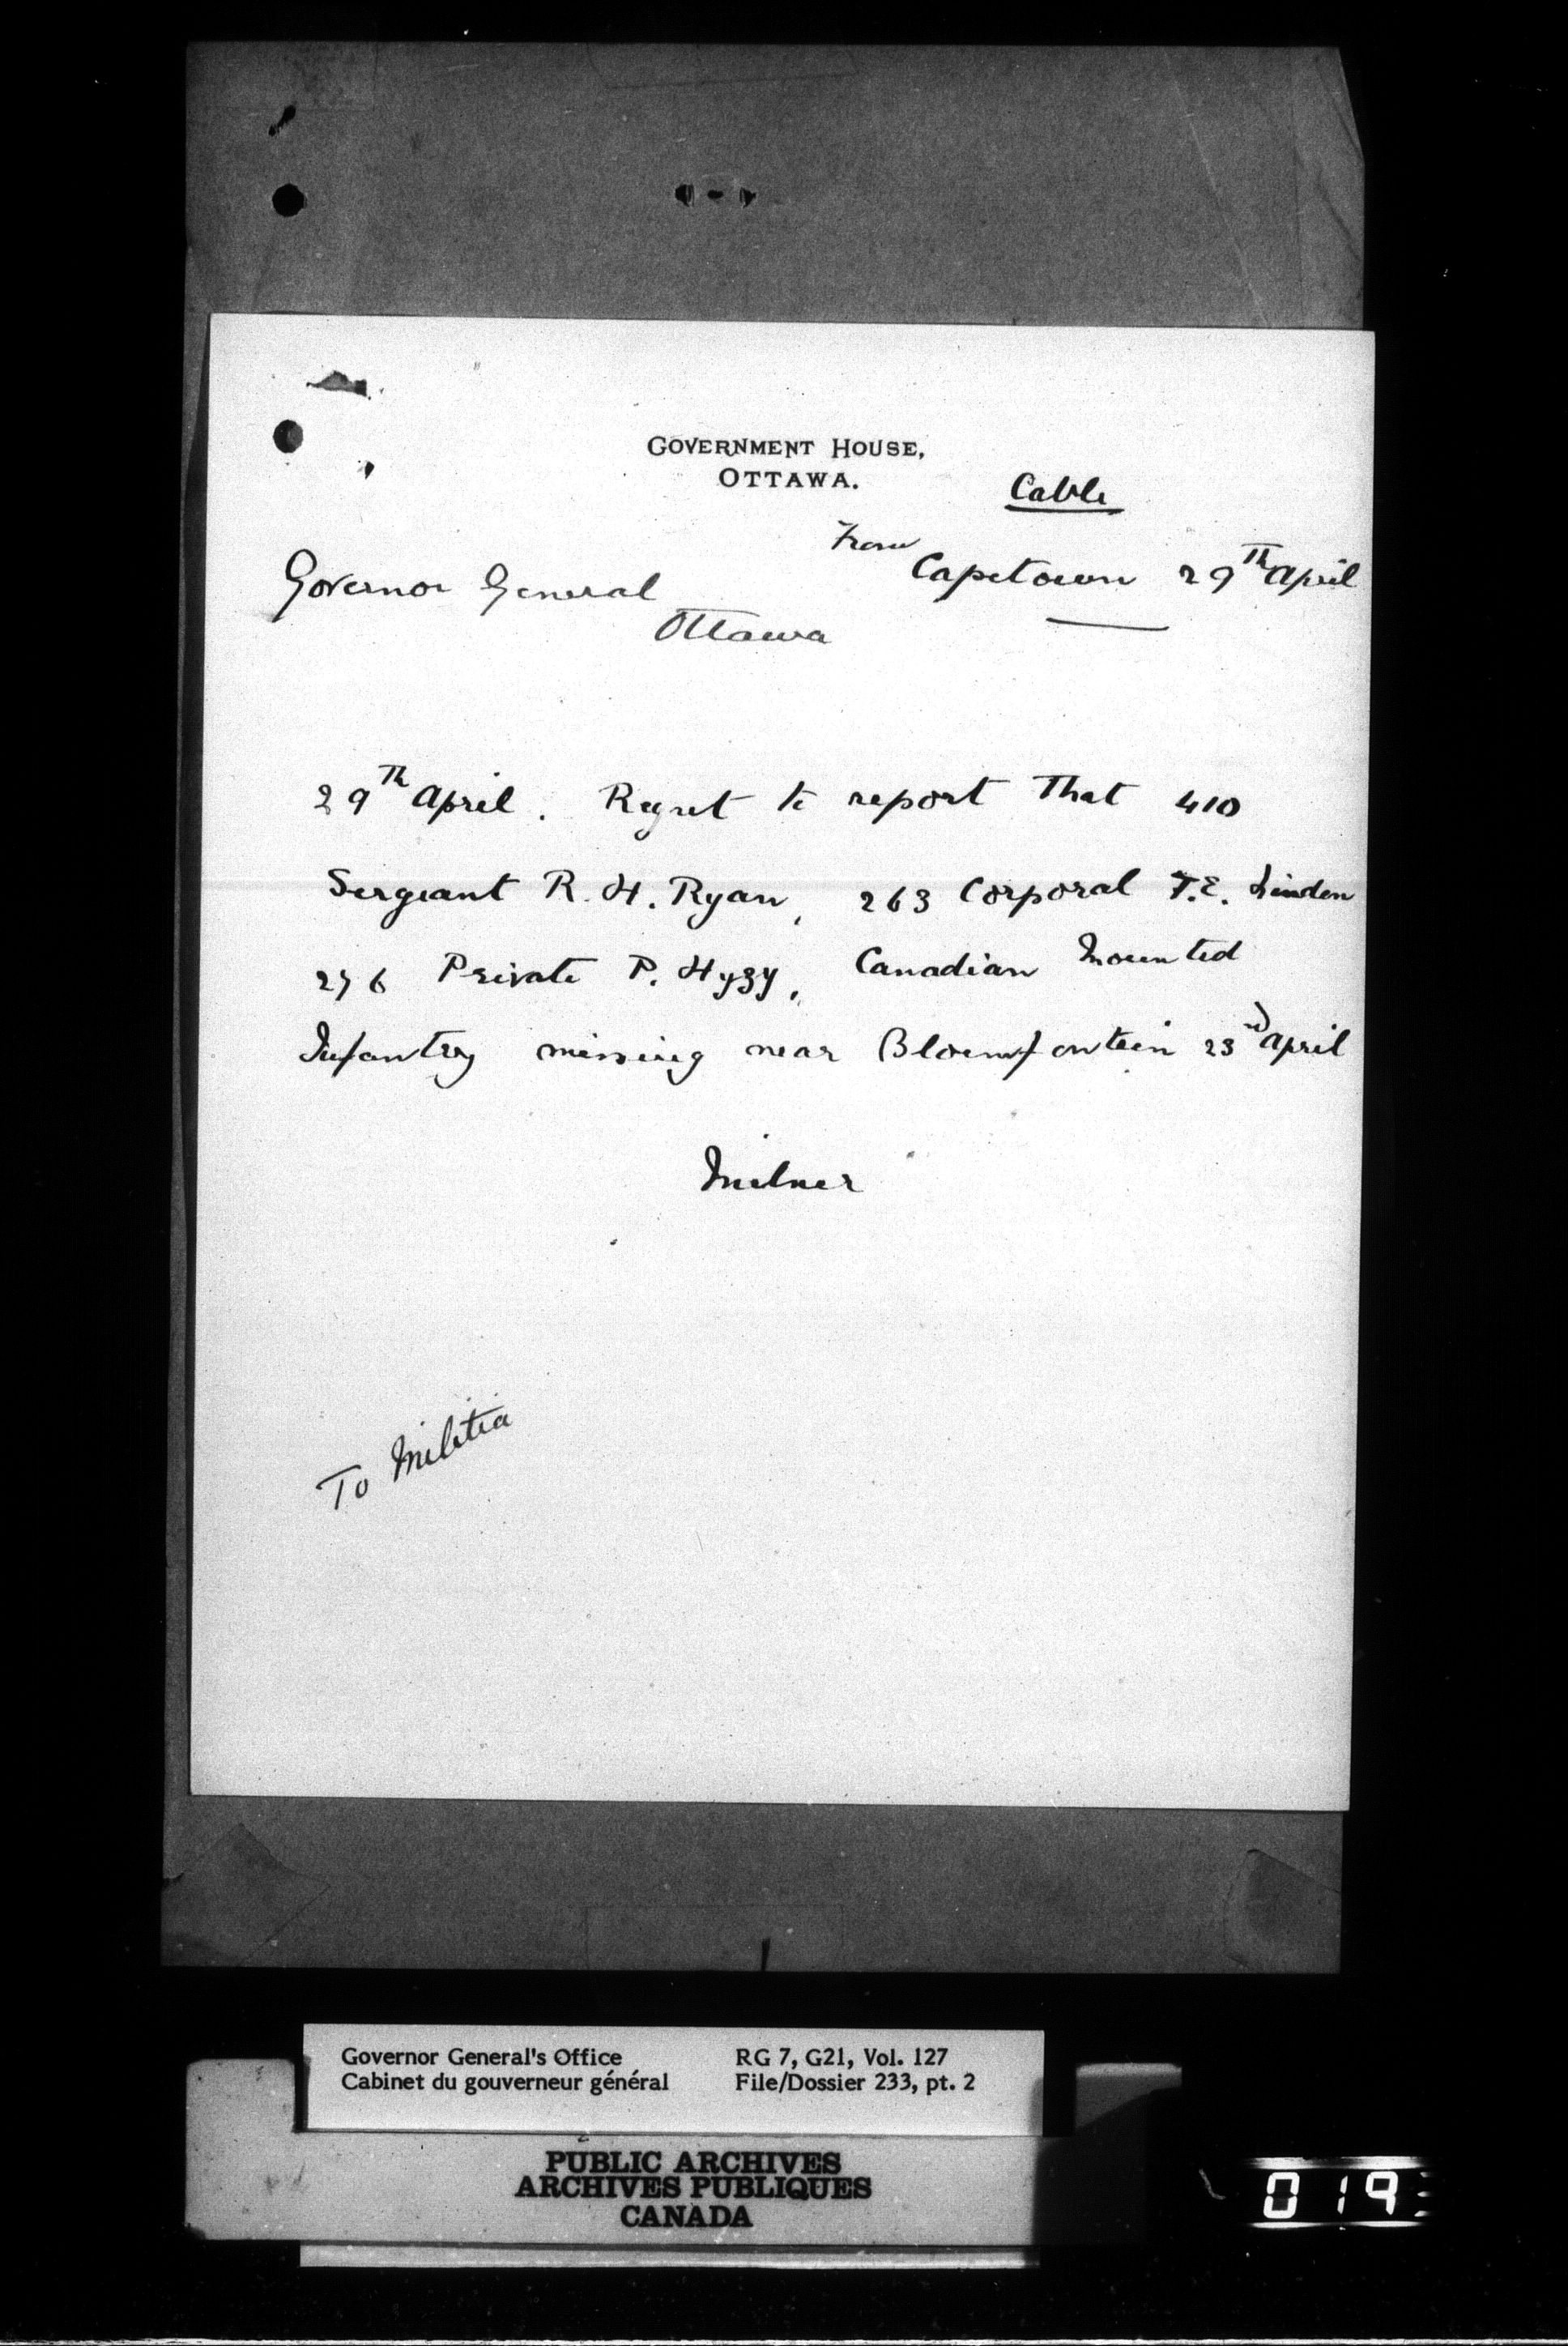 GOVERNMENT HOUSE,
OTTAWA.
Cable
From
Capetown 29th April
Governor General
Ottawa
29th April. Regret to report that 410
Sergeant R. H. Ryan, 263 Corporal T.E. Linden
276 Private P. Hyzy, Canadian Mounted
Infantry missing near Bloemfontein 23rd April
Milner
To Militia
Governor General's Office RG 7, G21, Vol. 127
Cabinet du gouverneur général File/Dossier 233, pt. 2
PUBLIC ARCHIVES
ARCHIVES PUBLIQUES
CANADA
019